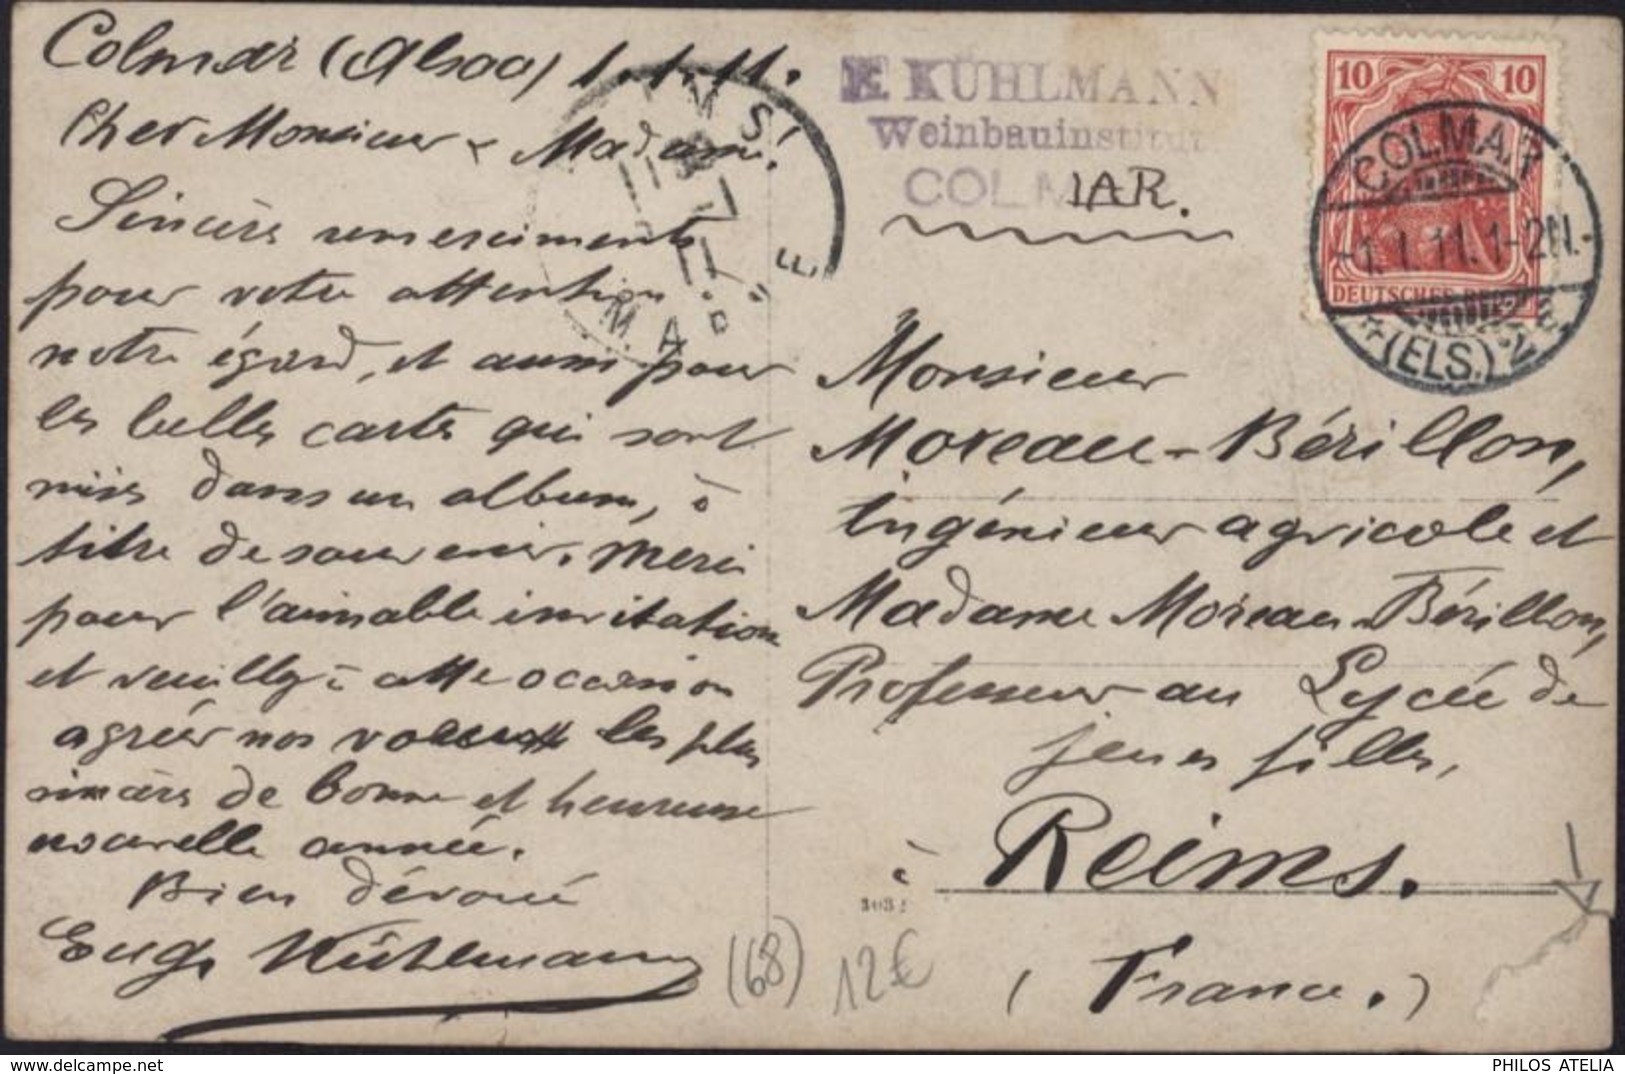 Colmar (Alsac) 1.1.11.
Cher Monsieur & Madame!
Sincères remerciments
pour votre attention
notre égard, et aussi pour
les belles cartes qui sont
mises dans un album, à
titre de souvenir. Merci
pour l'aimable invitation
et veuillez à cette occasion
agréer nos voeux les plus
sincères de bonne et heureuse
nouvelle année.
Bien dévoué
Eug. Kühlmann
E. KÜHLMANN
Weinbauinstitut
COLMAR.
10 10
DEUTSCHES
COLMAR
1.1.11.1-2N.
(ELS.) 2
MS
MAR
Monsieur
Moreau-Bérillon,
ingénieur agricole et
Madame Moreau-Bérillon,
Professeur au Lycée de
jeunes filles,
à Reims.
(France.)
(68) 12€
PHILOS ATELIA